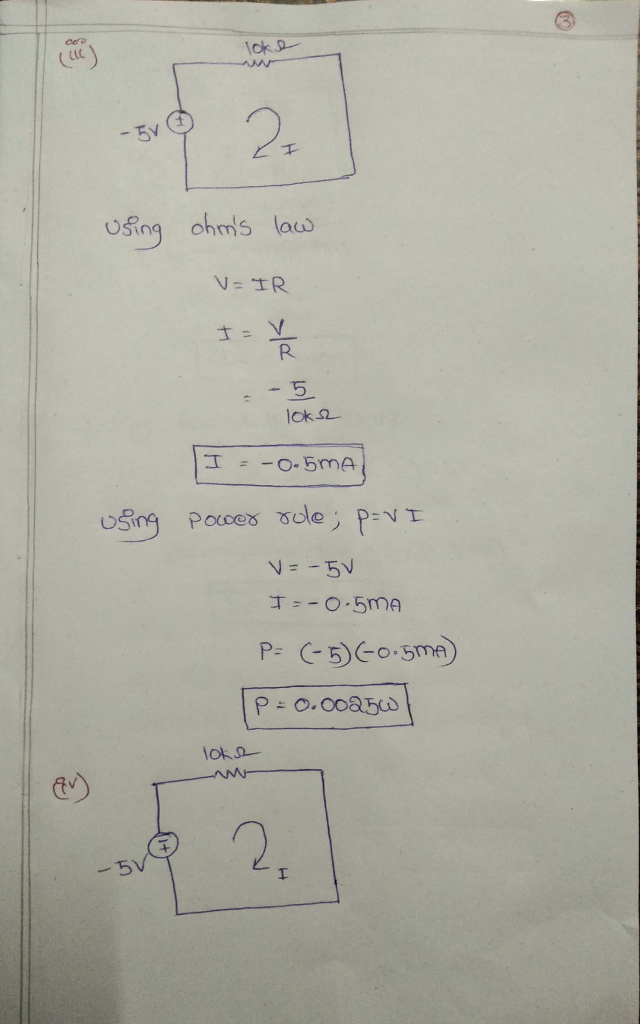 3
(iii)
10kΩ
-5V
I
Using ohm's law
V = IR
I = V/R
= -5/10kΩ
I = -0.5mA
Using power rule; P=VI
V = -5V
I = -0.5mA
P = (-5)(-0.5mA)
P = 0.0025W
(iv)
10kΩ
-5V
I